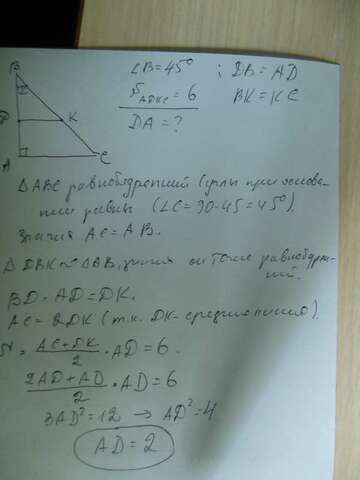 B
D
K
A
C
∠B = 45° ; DB = AD
S ADKC = 6 BK = KC
DA = ?
△ABC равнобедренный (углы при основа-
нии равны (∠C = 90-45 = 45°).
Значит AC = AB.
△DBK ~ △ABC, значит он тоже равнобедрен-
ный.
BD = AD = DK.
AC = 2DK (т.к. DK-средняя линия).
S = (AC + DK)/2 · AD = 6.
(2AD + AD)/2 · AD = 6
3AD² = 12 → AD² = 4
AD = 2